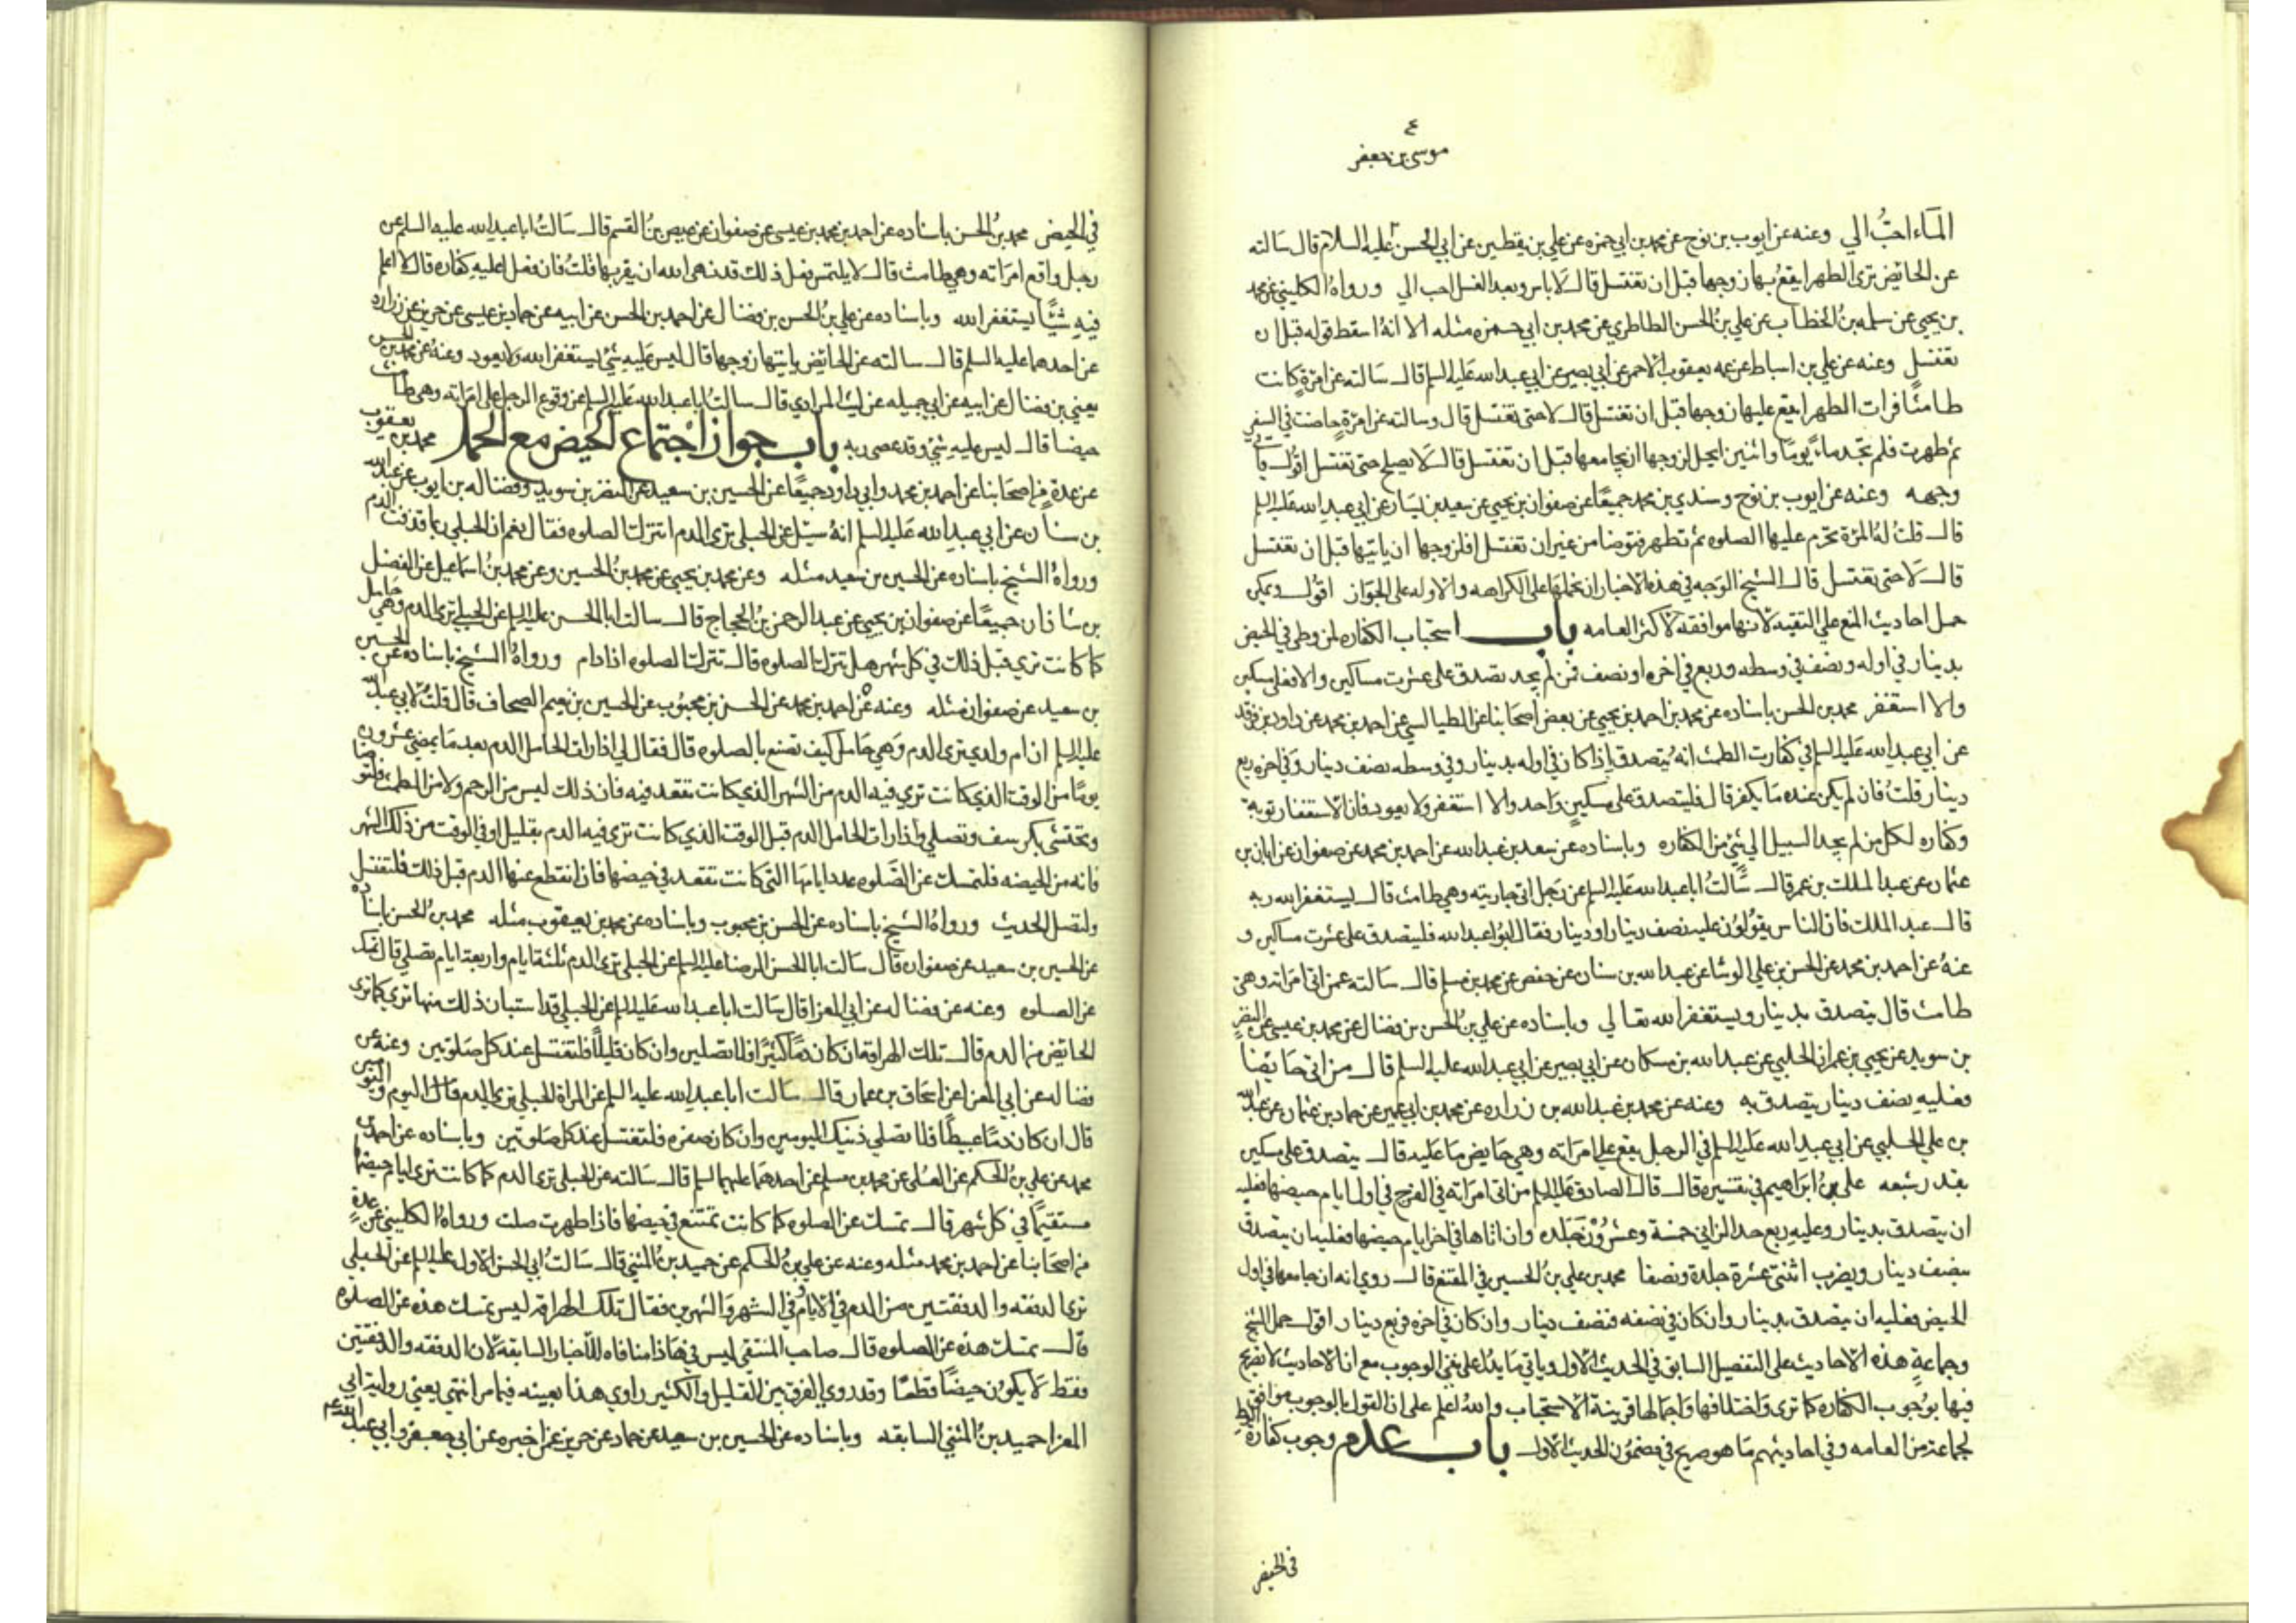 ع
موسى بن جعفر
الماء احبّ الي وعنه عن ايوب بن نوح عن محمد بن ابي حمزه عن علي بن يقطين عن ابي الحسن عليه السلام قال سالته
عن الحائض ترى الطهر ايقع بها زوجها قبل ان تغتسل قال لا باس وبعد الغسل احب الي ورواهُ الكليني عن محمد
بن يحيى عن سلمه بنُ الخطاب عن علي بنُ الحسن الطاطري عن محمد بن ابي حمزه مثله الا انهُ اسقط قوله قبل ان
تغتسل وعنه عن علي بن اسباط عن عمه يعقوب الاحمر عن ابي بصير عن ابي عبد الله عليه السلم قال سالته عن امرَةٍ كانت
طامثًا فرات الطهر ايقع عليها زوجها قبل ان تغتسل قال لا حتى تغتسل قال وسالته عن امرَةٍ حاضت في السفر
ثم طهرت فلم تجد ماءً يومًا واثنين ايحل لزوجها ان يجامعها قبل ان تغتسل قال لا يصلح حتى تغتسل اقول ياتي
وجهه وعنه عن ايوب بن نوح وسندي بن محمد جميعًا عن صفوان بن يحيى عن سعيد بن يسار عن ابي عبد الله عليه السلم
قال قلت لهُ المرَة تحرم عليها الصلوه ثم تطهر فتوضا من غير ان تغتسل افلزوجها ان ياتيها قبل ان تغتسل
قال لا حتى تغتسل قال الشيخ الوجه في هذه الاخبار ان نحملها على الكراهه والاوله على الجواز اقول ويمكن
حمل احاديث المنع على التقيه لانها موافقه لاكثر العامه باب استحباب الكفاره لمن وطى في الحيض
بدينار في اوله ونصف في وسطه وربع في اخره او نصف فمن لم يجد تصدق على عشرت مساكين والا فعلى مسكين
والا استغفر محمد بن الحسن باسناده عن محمد بن احمد بن يحيى عن بعض اصحابنا عن الطيالسي عن احمد بن محمد عن داود بن فرقد
عن ابي عبد الله عليه السلم في كفارت الطمث انه يُتصدق اذا كان في اوله بدينار وفي وسطه بصنف دينار وفي اخره ربع
دينار قلتُ فان لم يكن عنده ما يكفر قال فليتصدق على مسكينٍ واحد والا استغفر ولا يعود فان الاستغفار توبة
وكفاره لكل من لم يجد السبيل الي شيٍ من الكفاره وباسناده عن سعد بن عبد الله عن احمد بن محمد عن صفوان عن ابان بن
عثمان عن عبد الملك بن عمر قال سالتُ ابا عبد الله عليه السلم عن رَجل اتى جاريته وهي طامث قال ليستغفر الله ربه
قال عبد الملك فان الناس يقولون عليه نصف دينار او دينار فقال ابُو عبد الله فليتصدق على عشرت مساكين و
عنهُ عن احمد بن محمد عن الحسن بن علي الوشا عن عبد الله بن سنان عن حفص عن محمد بن مسلم قال سالته عمن اتى امرَاته وهي
طامث قال يتصدق بدينار ويستغفر الله تعالي وباسناده عن علي بنُ الحسن بن فضال عن محمد بن عيسى عن النضر
بن سويد عن يحيى بن عمران الحلبي عن عبد الله بن مسكان عن ابي بصير عن ابي عبد الله عليه السلم قال من اتى حايضًا
فعليه بصنف دينار يتصدق به وعنه عن محمد بن عبد الله بن زراره عن محمد بن ابي عمير عن حماد بن عثمان عن عبيد الله
بن علي الحلبي عن ابي عبد الله عليه السلم في الرجل يقع على امرَاته وهي حايض ما عليه قال يتصدق على مسكين
بقدر شبعه علي بنُ ابراهيم في تفسيره قال قال الصادق عليه السلم من اتى امرَاته في الفرج في اول ايام حيضها فعليه
ان يتصدق بدينار وعليه ربع حد الزاني خمسة وعشرُون جَلده وان اتاها في اخر ايام حيضها فعليه ان يتصدق
بنصف دينار ويضرب اثنتى عشرة جلدة ونصفا محمد بن علي بنُ الحسين في المقنع قال روي انه ان جامعها في اول
الحيض فعليه ان يتصدق بدينار وان كان في نصفه فنصف دينار وان كان في اخره فربع دينار اقول حمل الشيخ
وجماعةٍ هذه الاحاديث على التفصيل السابق في الحديث الاول وياتي ما يدُل على نفي الوجوب مع ان الاحاديث لا تصريح
فيها بوُجوب الكفاره كما ترى واختلافها واجمالها قرينة الاستحباب واللهُ اعلم على ان القول بالوجوب موافق
لجماعة من العامه وفي احاديثهم ما هو صريح في مضمُون الحديث الاول باب عدم وجوب كفارة الوطي
في الحيض
في الحيض محمد بنُ الحسن باسناده عن احمد بن محمد بن عيسى عن صفوان عن عيص بن القسم قال سَالتُ ابا عبد الله عليه السلم عن
رجل واقع امرَاته وهي طامث قال لا يلتمس فعل ذلك قد نهى الله ان يقربها قلتُ فان فعل اعليه كفاره قال لا اعلم
فيهِ شيئًا يستغفر الله وباسناده عن علي بنُ الحسن بن فضال عن احمد بن الحسن عن ابيه عن حماد بن عيسى عن حريز عن زراره
عن احدهما عليه السلم قال سالته عن الحائض ياتيها زوجها قال ليس عليه شيٌ يستغفر الله ولا يعود وعنهُ عن محمد بن الحسن
يعني بن فضال عن ابيه عن ابي جميله عن ليث المرادي قال سالتُ ابا عبد الله عليه السلم عن وقوع الرجل على امرَاته وهي طامث
حيضا قال ليس عليهِ شيٌ وقد عصى ربه باب جواز اجتماع الحيض مع الحمل محمد بن يعقوب
عن عدةٍ من اصحابنا عن احمد بن محمد وابي داود جميعًا عن الحسين بن سعيد عن النضر بن سويد وفضاله بن ايوب عن عبد الله
بن سنان عن ابي عبد الله عليه السلم انهُ سئل عن الحبلي ترى الدم اتترك الصلوه فقال نعم ان الحبلي ربما قذفت الدم
ورواهُ الشيخ باسناده عن الحسين بن سعيد مثله وعن محمد بن يحيى عن محمد بنُ الحسين وعن محمد بنُ اسماعيل عن الفضل
بن شاذان جميعًا عن صفوان بن يحيى عن عبد الرحمن بنُ الحجاج قال سالت ابا الحسن عليه السلم عن الحبلي ترى الدم وهي حامل
كما كانت ترى قبل ذلك في كل شهر هل تترك الصلوه قال تترك الصلوه اذا دام ورواهُ الشيخ باسناده عن الحسين
بن سعيد عن صفوان مثله وعنه عن احمد بن محمد عن الحسن بن محبُوب عن الحسين بن نعيم الصحاف قال قلتُ لابي عبد الله
عليه السلم ان ام ولدي ترى الدم وَهي حَامل كيف تصنع بالصلوه قال فقال لي اذا رات الحامل الدم بعد ما يمضي عشرون
يومًا من الوقت الذي كانت ترى فيه الدم من الشهر الذي كانت تقعد فيه فان ذلك ليس من الرحم ولا من الطمث فلتتوضا
وتحتشى بكرسف وتصلي واذا رات الحامل الدم قبل الوقت الذي كانت ترى فيه الدم بقليل او في الوقت من ذلك الشهر
فانه من الحيضه فلتمسك عن الصَلوه عدد ايامها التي كانت تقعد في حيضها فان انقطع عنها الدم قبل ذلك فلتغتسل
ولتصل الحديث ورواهُ الشيخ باسناده عن الحسن بن محبوب وباسناده عن محمد بن يعقوب مثله محمد بنُ الحسن باسناده
عن الحسين بن سعيد عن صفوان قال سَالت ابا الحسن الرضا عليه السلم عن الحبلي ترى الدم ثلثة ايام واربعة ايام تصلي قال تمسك
عن الصلوه وعنه عن فضاله عن ابي المعزا قال سَالت ابا عبد الله عليه السلم عن الحبلي قد استبان ذلك منها ترى كما ترى
الحائض من الدم قال تلك الهراقه ان كان دمًا كثيرًا فلا تصلين وان كان قليلًا فلتغتسل عند كل صَلوتين وعنه عن
فضاله عن ابي المعزا عن اسحاق بن عمار قال سَالت ابا عبد الله عليه السلم عن المراة الحبلي ترى الدم قال اليوم واليومين
قال ان كان دمًا عبيطًا فلا تصلي ذينك اليومين وان كان صفره فلتغتسل عند كل صَلوتين وباسناده عن احمد بن
محمد عن علي بنُ الحكم عن العُلى عن محمد بن مسلم عن احدهما عليهما السلم قال سَالته عن الحبلي ترى الدم كما كانت ترى ايام حيضها
مستقيمًا في كل شهر قال تمسك عن الصلوه كما كانت تمتنع في حيضها فاذا طهرت صلت ورواهُ الكليني عن عدةٍ
من اصحَابنا عن احمد بن محمد مثله وعنه عن علي بنُ الحكم عن حميد بنُ المثني قال سَالتُ ابي الحسن الاول عليه السلم عن الحبلي
ترى الدفقه والدفقتين من الدم في الايام وفي الشهر والشهرين فقال تلك الهراقه ليس تمسك هذه عن الصلوه
قال تمسك هذه عن الصلوه قال صاحب المنتقي ليس في هَاذا منافاه للاخبار السابقه لان الدفقه والدفقتين
فقط لا يكون حيضًا قطعًا وقد روي الفرق بين القليل والكثير راوي هذا بعينه فيما مر انتهي يعني رواية ابي
المعزا حميد بنُ المثني السابقه وباسناده عن الحسين بن سعيد عن حماد عن حريز عمن اخبره عن ابي جعفر وابي عبد الله ع م